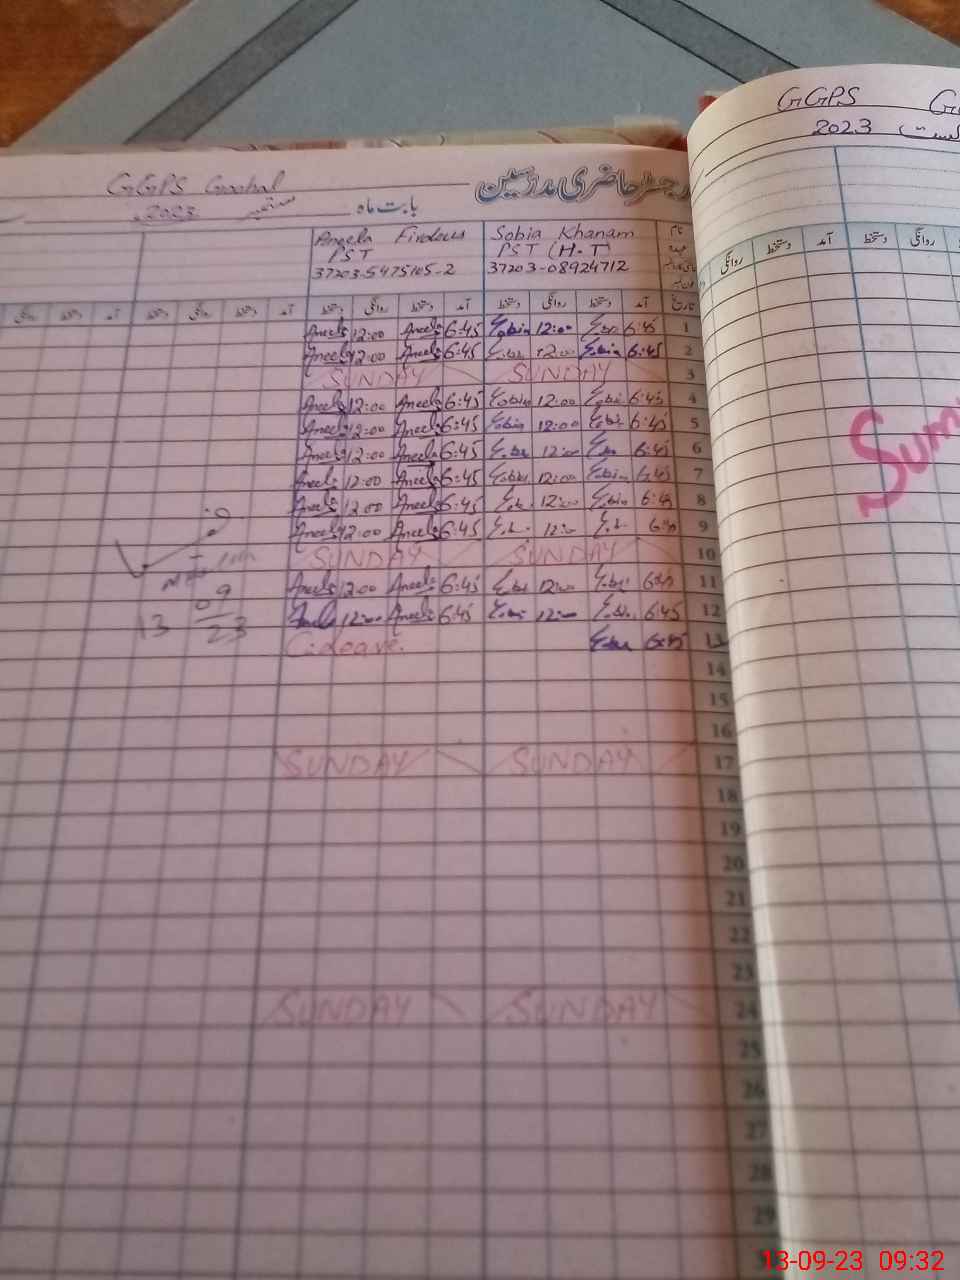 GGPS Goohal
رجسٹر حاضری مدرسین
بابت ماہ ستمبر 2023
نام
عہدہ
Sobia Khanam
PST (H.T)
37203-08924712
Aneela Firdous
PST
37203-5475105-2
تاریخ آمد دستخط روانگی دستخط آمد دستخط روانگی دستخط آمد دستخط روانگی دستخط آمد دستخط روانگی
1 6:45 Sobia 12:00 Sobia 6:45 Aneela 12:00 Aneela
2 6:45 Sobia 12:00 Sobia 6:45 Aneela 12:00 Aneela
3 SUNDAY SUNDAY
4 6:45 Sobia 12:00 Sobia 6:45 Aneela 12:00 Aneela
5 6:45 Sobia 12:00 Sobia 6:45 Aneela 12:00 Aneela
6 6:45 Sobia 12:00 Sobia 6:45 Aneela 12:00 Aneela
7 6:45 Sobia 12:00 Sobia 6:45 Aneela 12:00 Aneela
8 6:45 Sobia 12:00 Sobia 6:45 Aneela 12:00 Aneela
9 Aneela 6:45 Aneela 12:00
10 SUNDAY SUNDAY
11 6:45 Sobia 12:00 Sobia 6:45 Aneela 12:00 Aneela
12 6:45 Sobia 12:00 Sobia 6:45 Aneela 12:00 Aneela
13 6:45 Sobia C.Leave
14
15
16
17 SUNDAY SUNDAY
18
19
20
21
22
23
24 SUNDAY SUNDAY
25
26
27
28
29
13 09 23
GGPS
2023
آمد دستخط روانگی
روانگی دستخط
Sum
13-09-23 09:32